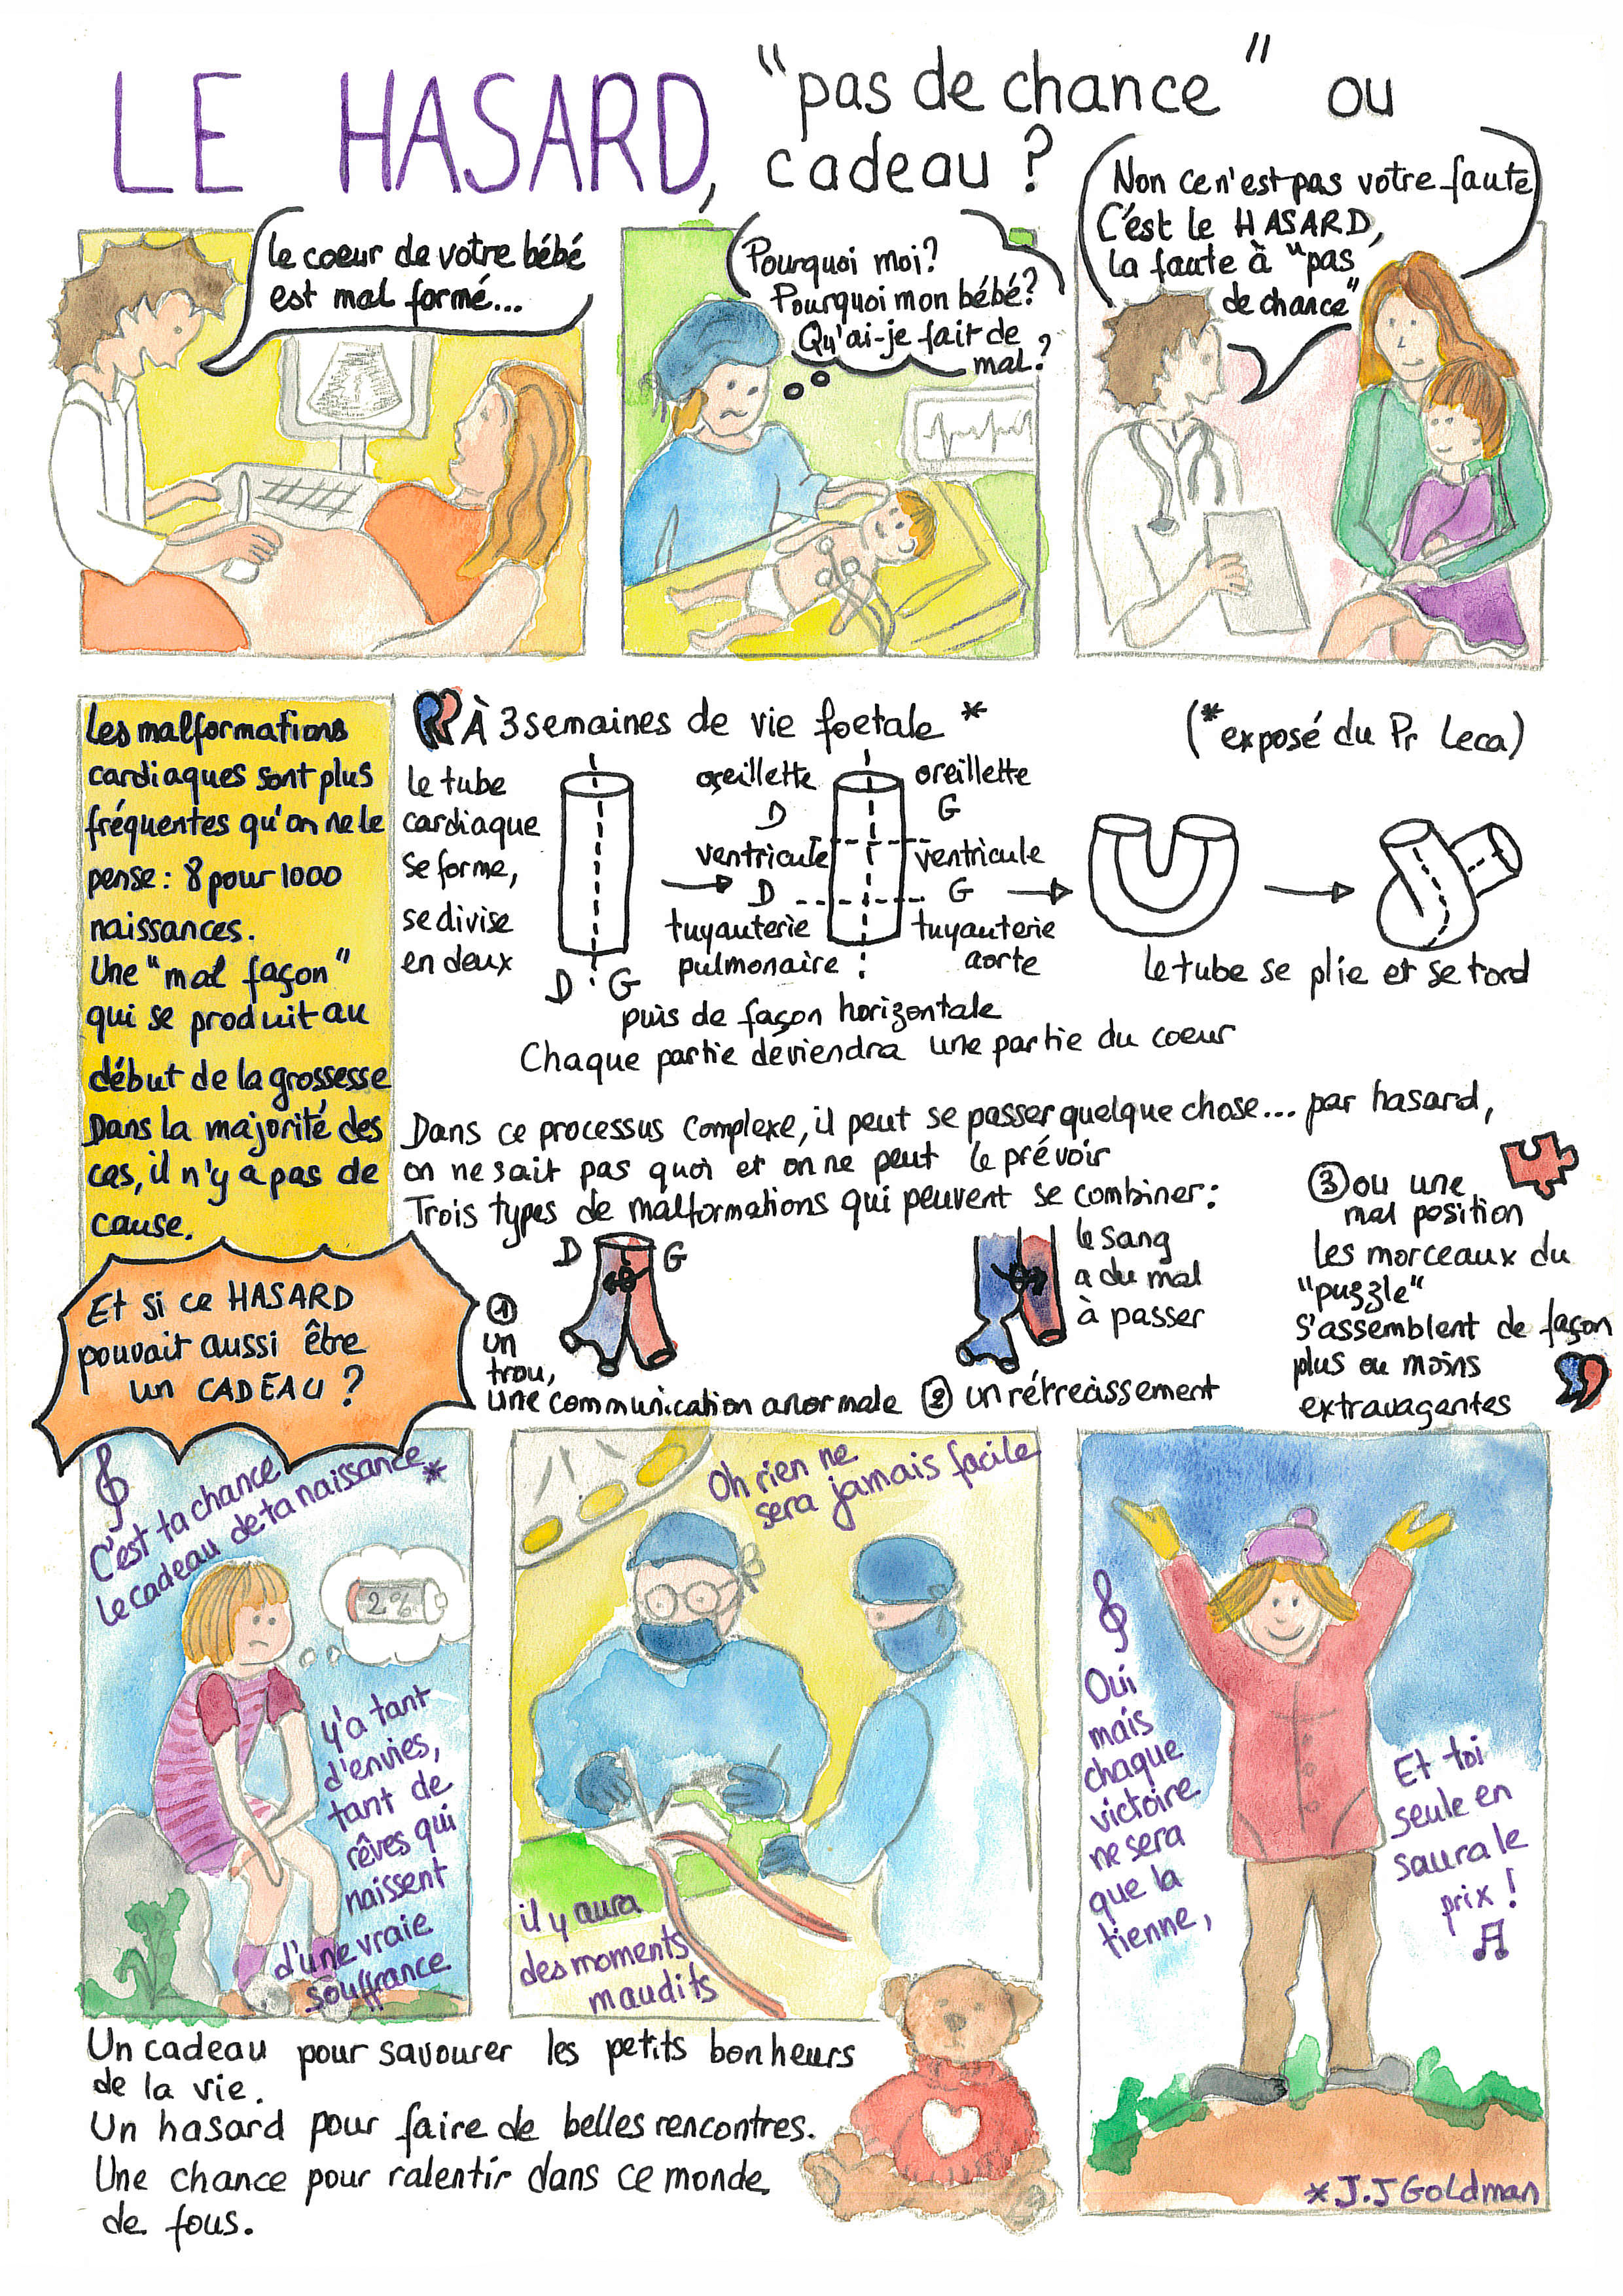 LE HASARD, "pas de chance" ou
cadeau ?
le coeur de votre bébé
est mal formé...
Pourquoi moi?
Pourquoi mon bébé?
Qu'ai-je fait de
mal?
Non ce n'est pas votre faute
C'est le HASARD,
la faute à "pas
de chance"
Les malformations
cardiaques sont plus
fréquentes qu'on ne le
pense : 8 pour 1000
naissances.
Une "mal façon"
qui se produit au
début de la grossesse
Dans la majorité des
cas, il n'y a pas de
cause.
À 3 semaines de vie foetale *
(*exposé du Pr Leca)
le tube
cardiaque
se forme,
se divise
en deux
D G
oreillette
D
ventricule
D
tuyauterie
pulmonaire
oreillette
G
ventricule
G
tuyauterie
aorte
puis de façon horizontale
Chaque partie deviendra une partie du coeur
le tube se plie et se tord
Dans ce processus complexe, il peut se passer quelque chose... par hasard,
on ne sait pas quoi et on ne peut le prévoir
Trois types de malformations qui peuvent se combiner :
D G
① un
trou,
une communication anormale
le sang
a du mal
à passer
② un rétrecissement
③ ou une
mal position
les morceaux du
"puzzle"
s'assemblent de façon
plus ou moins
extravagantes
Et si ce HASARD
pouvait aussi être
un CADEAU ?
C'est ta chance
le cadeau de ta naissance *
2%
y'a tant
d'envies,
tant de
rêves qui
naissent
d'une vraie
souffrance
Oh rien ne
sera jamais facile
il y aura
des moments
maudits
Oui
mais
chaque
victoire
ne sera
que la
tienne,
Et toi
seule en
saura le
prix !
*J.J Goldman
Un cadeau pour savourer les petits bonheurs
de la vie.
Un hasard pour faire de belles rencontres.
Une chance pour ralentir dans ce monde
de fous.